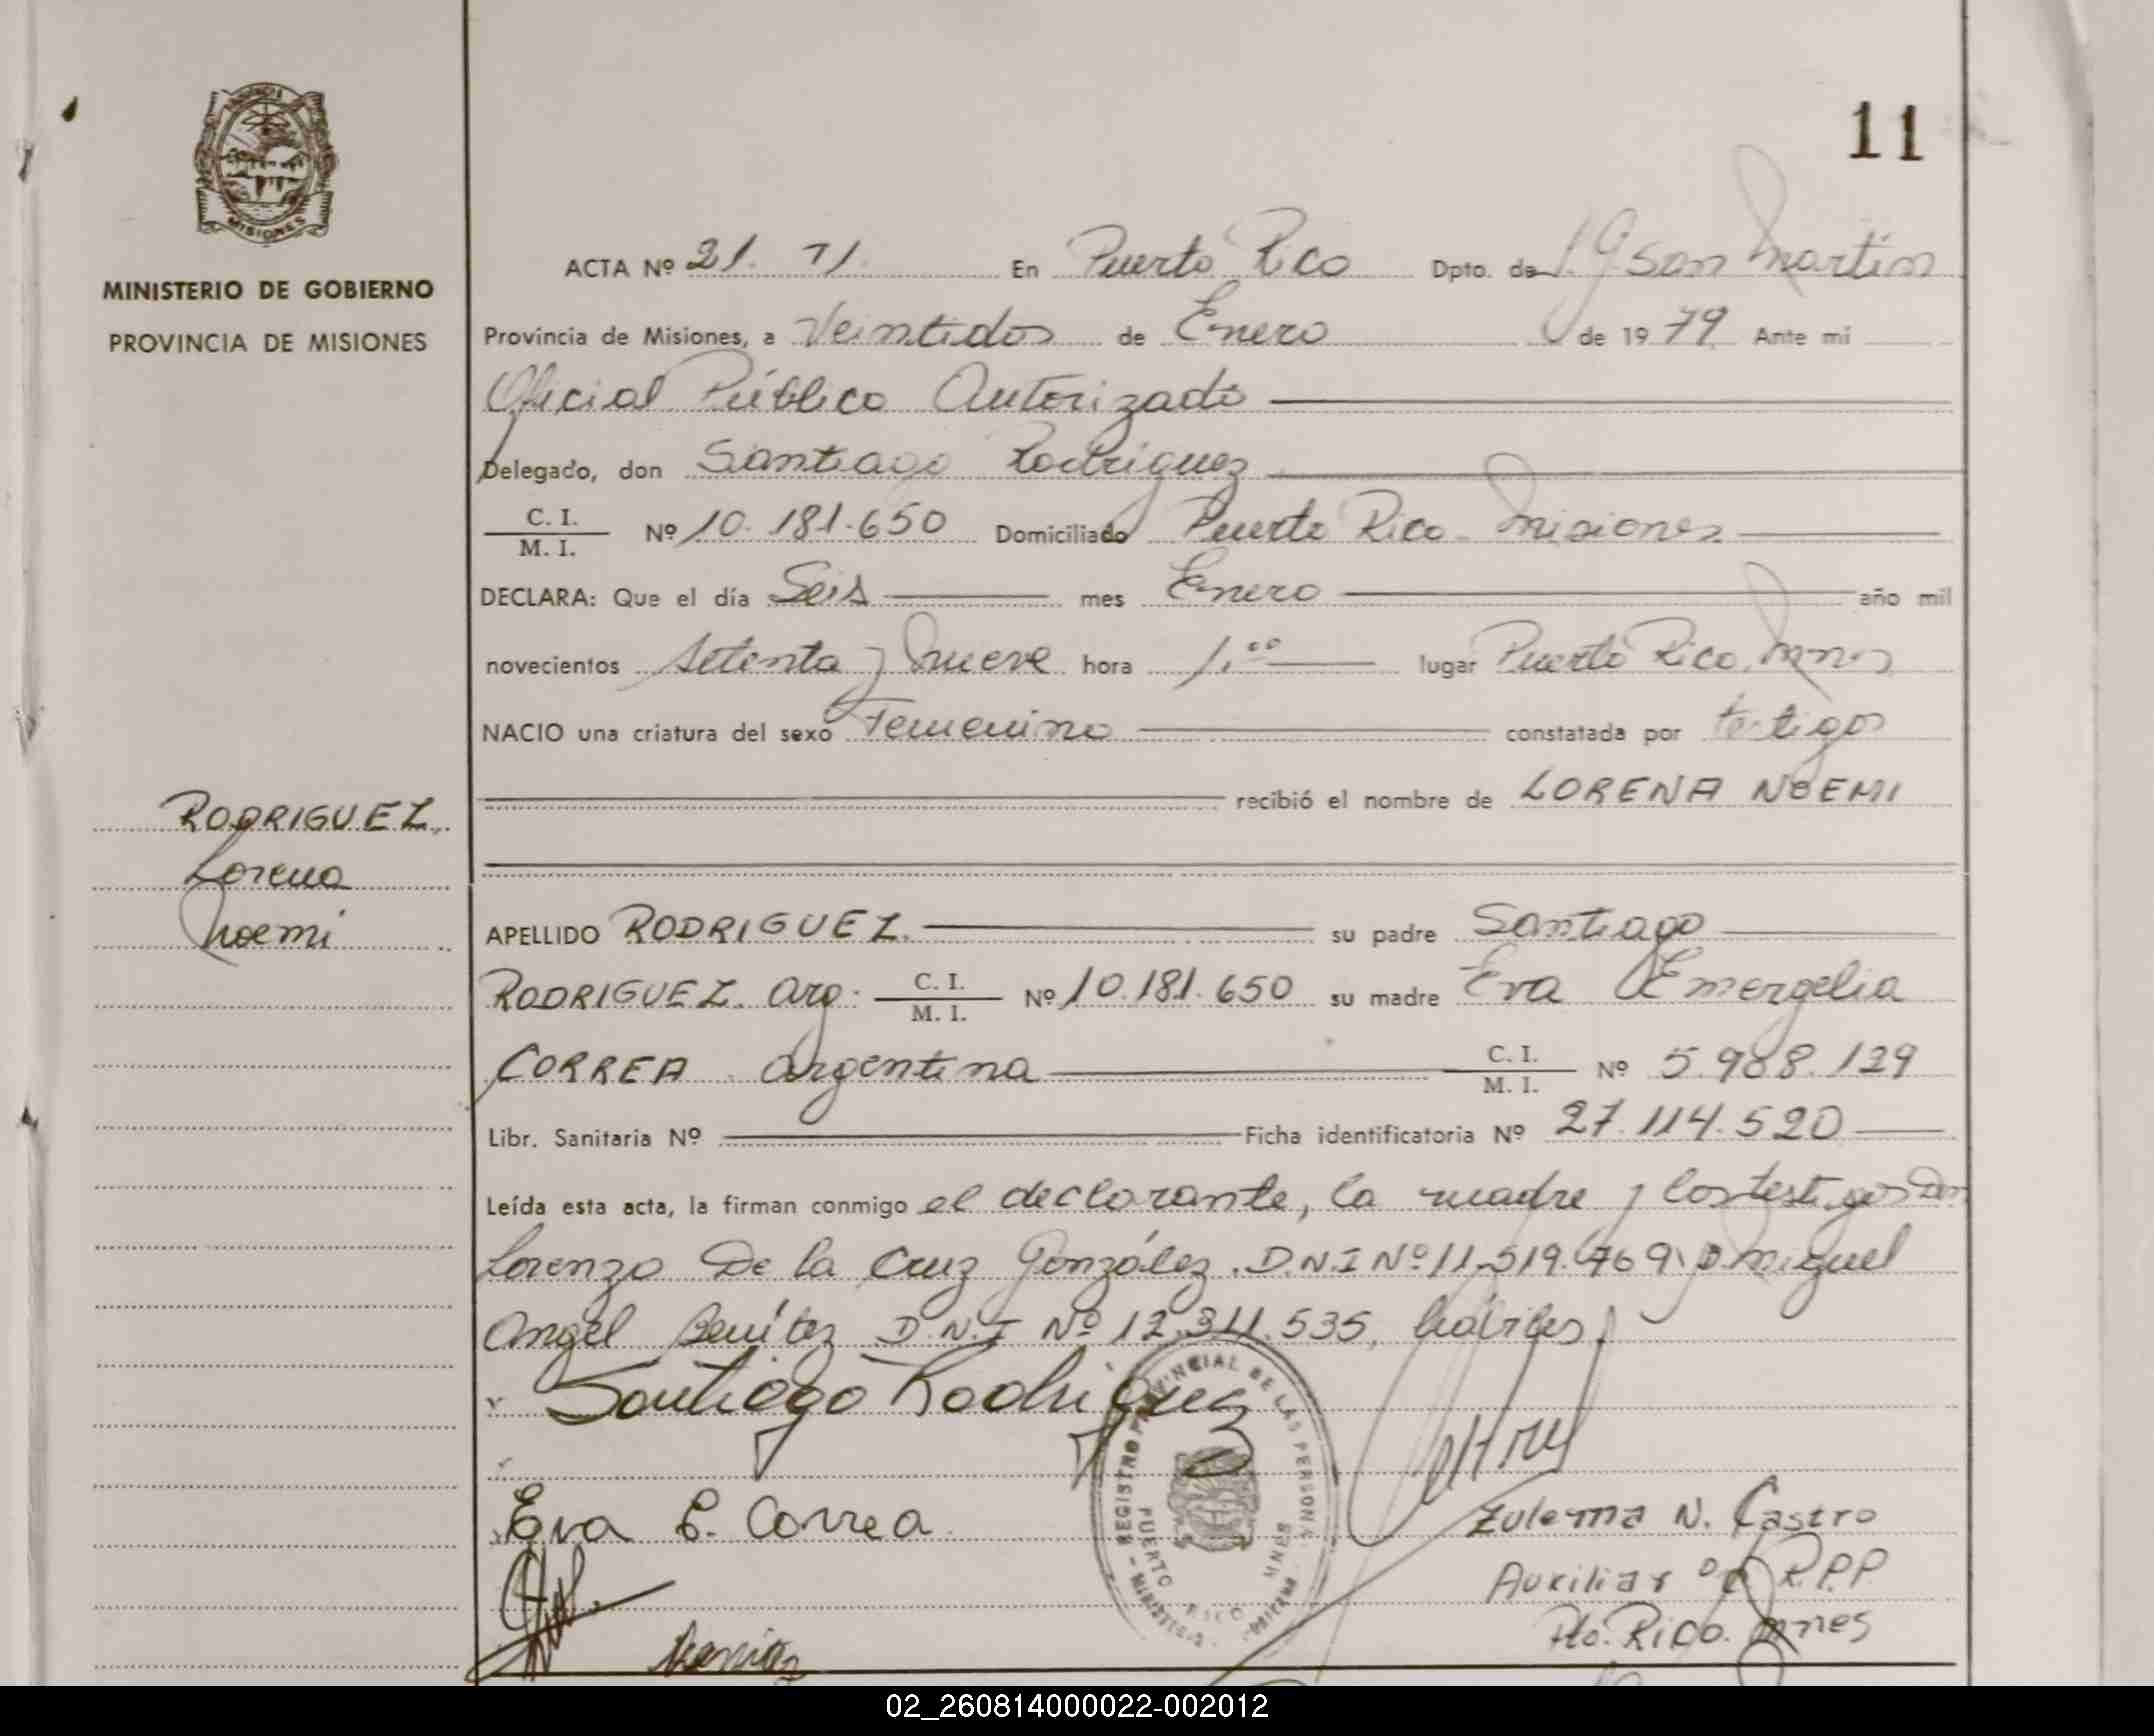 11
MISIONES
MINISTERIO DE GOBIERNO
PROVINCIA DE MISIONES
ACTA Nº 21. T1. En Puerto Rico Dpto. de L. G. San Martin
Provincia de Misiones, a Veintidos de Enero de 1979 Ante mi
Oficial Público Autorizado
Delegado, don Santiago Rodriguez
C. I.
M. I. Nº 10.181.650 Domiciliado Puerto Rico Misiones
DECLARA: Que el día Seis mes Enero año mil
novecientos setenta y nueve hora 1.°° lugar Puerto Rico. Mnes
NACIO una criatura del sexo Femenino constatada por testigos
recibió el nombre de LORENA NOEMI
RODRIGUEZ.
Lorena
Noemi
APELLIDO RODRIGUEZ. su padre Santiago
RODRIGUEZ. arg. C. I.
M. I. Nº 10.181.650 su madre Eva Emergelia
CORREA Argentina C. I.
M. I. Nº 5.988.129
Libr. Sanitaria Nº Ficha identificatoria Nº 27.114.520
Leída esta acta, la firman conmigo el declarante, la madre y los testigos Don
Lorenzo De la Cruz González. D.N.I Nº 11.519.769 D. Miguel
Angel Benítez D.N.I Nº 12.311.535, hábiles.
Santiago Rodriguez
Eva E. Correa
Benitez
REGISTRO PROVINCIAL DE LAS PERSONAS
PUERTO RICO MNES
Zulema N. Castro
Auxiliar R.P.P
Pto. Rico. Mnes
02_260814000022-002012